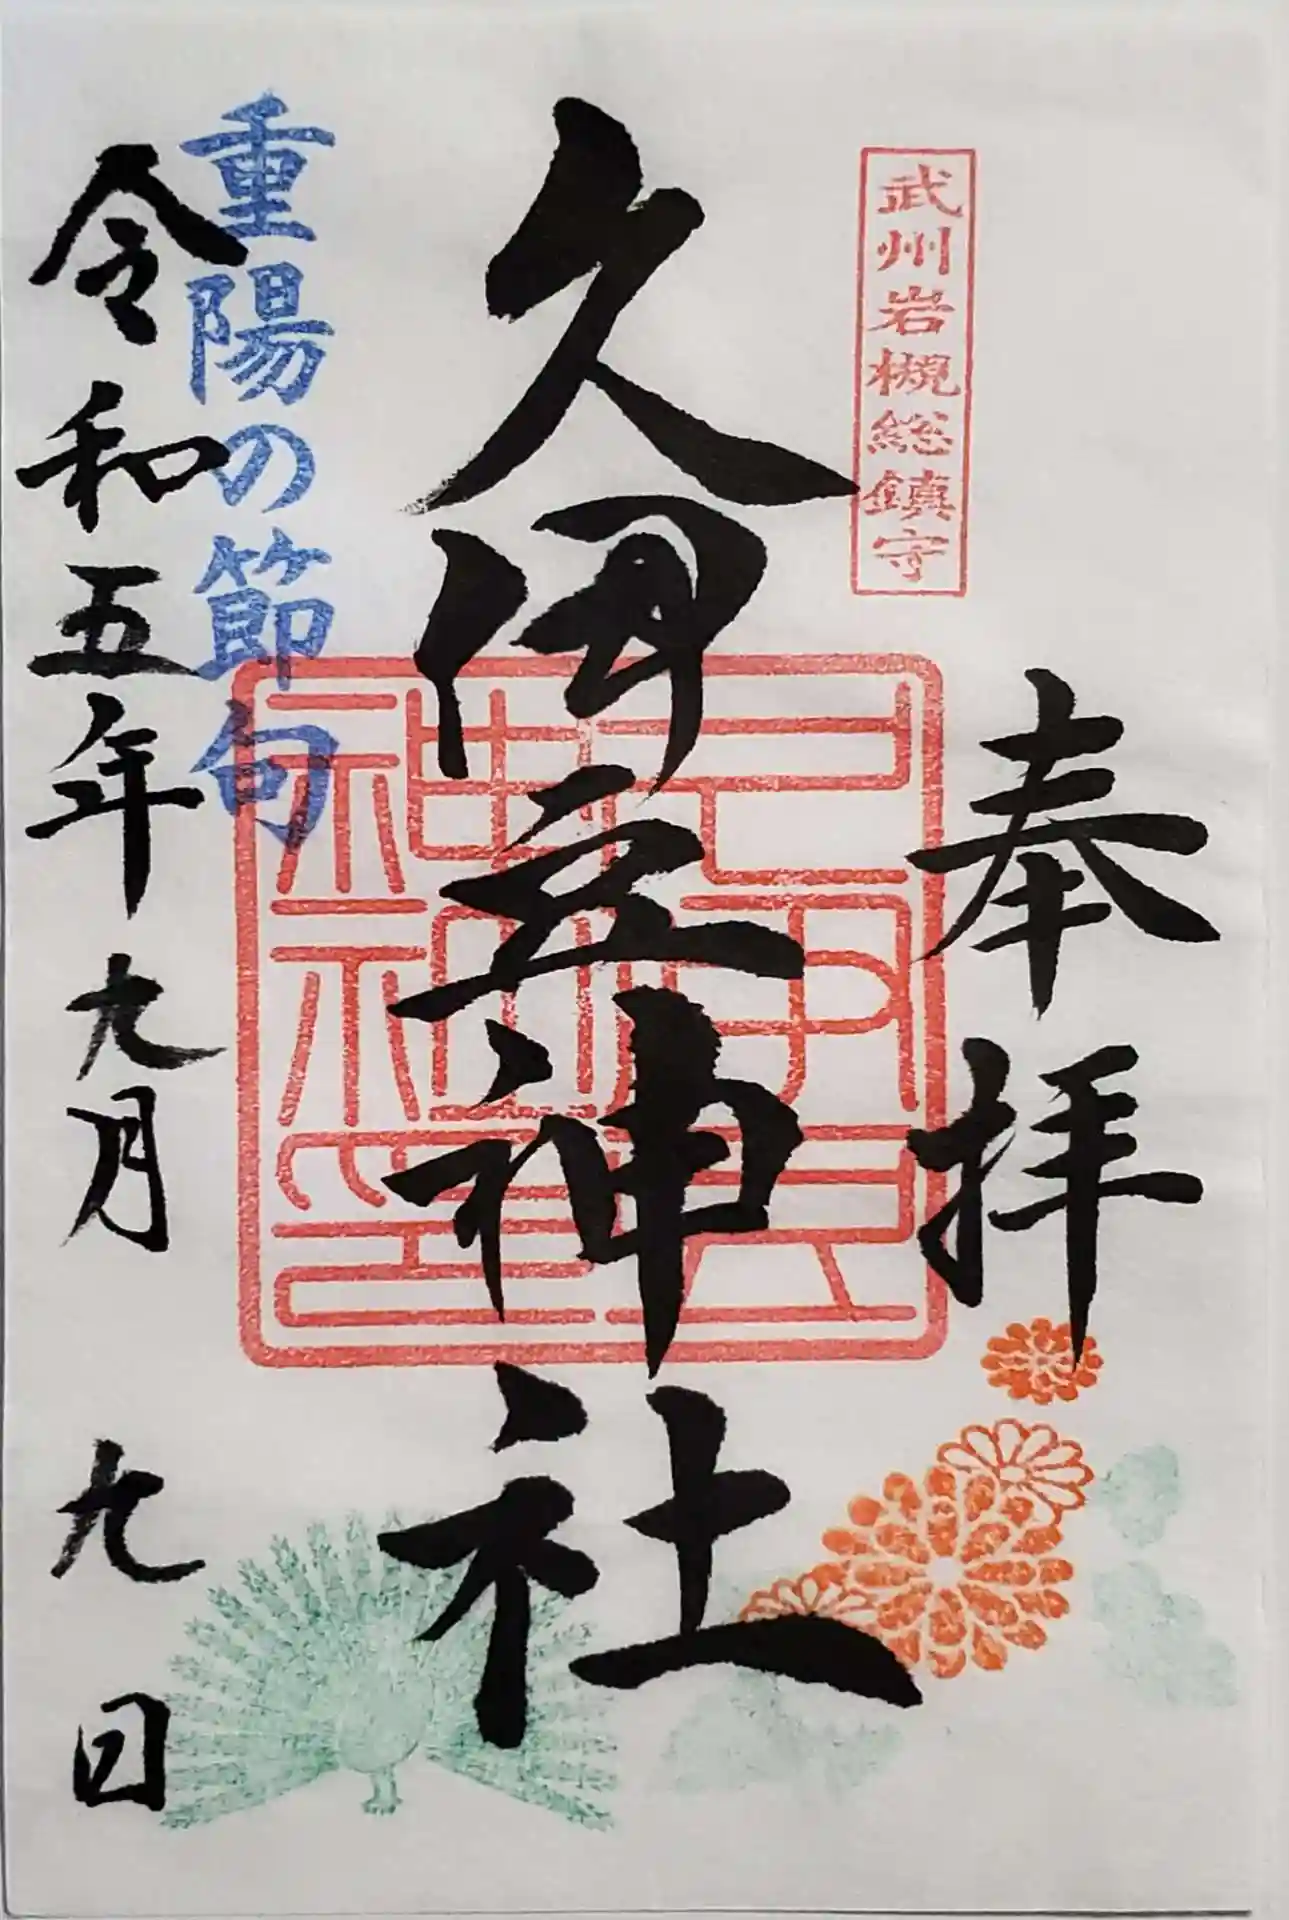 武州岩槻総鎮守
奉拝
久伊豆神社
元伊豆神社神印
重陽の節句
令和五年九月九日